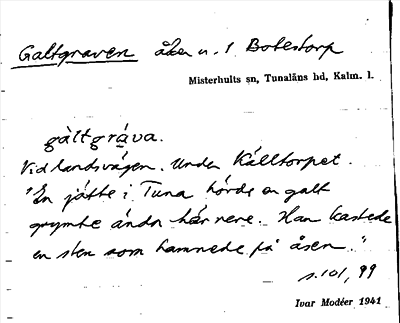 Galtgraven åker n. 1 Botestorp
Misterhults sn, Tunaläns hd, Kalm. l.
gàltgrávа.
Vid landsvägen. Under Källtorpet.
"En jätte i Tuna hörde en galt
grymte ända här nere. Han kastade
en sten som hamnade på åsen."
s. 101, 99
Ivar Modéer 1941